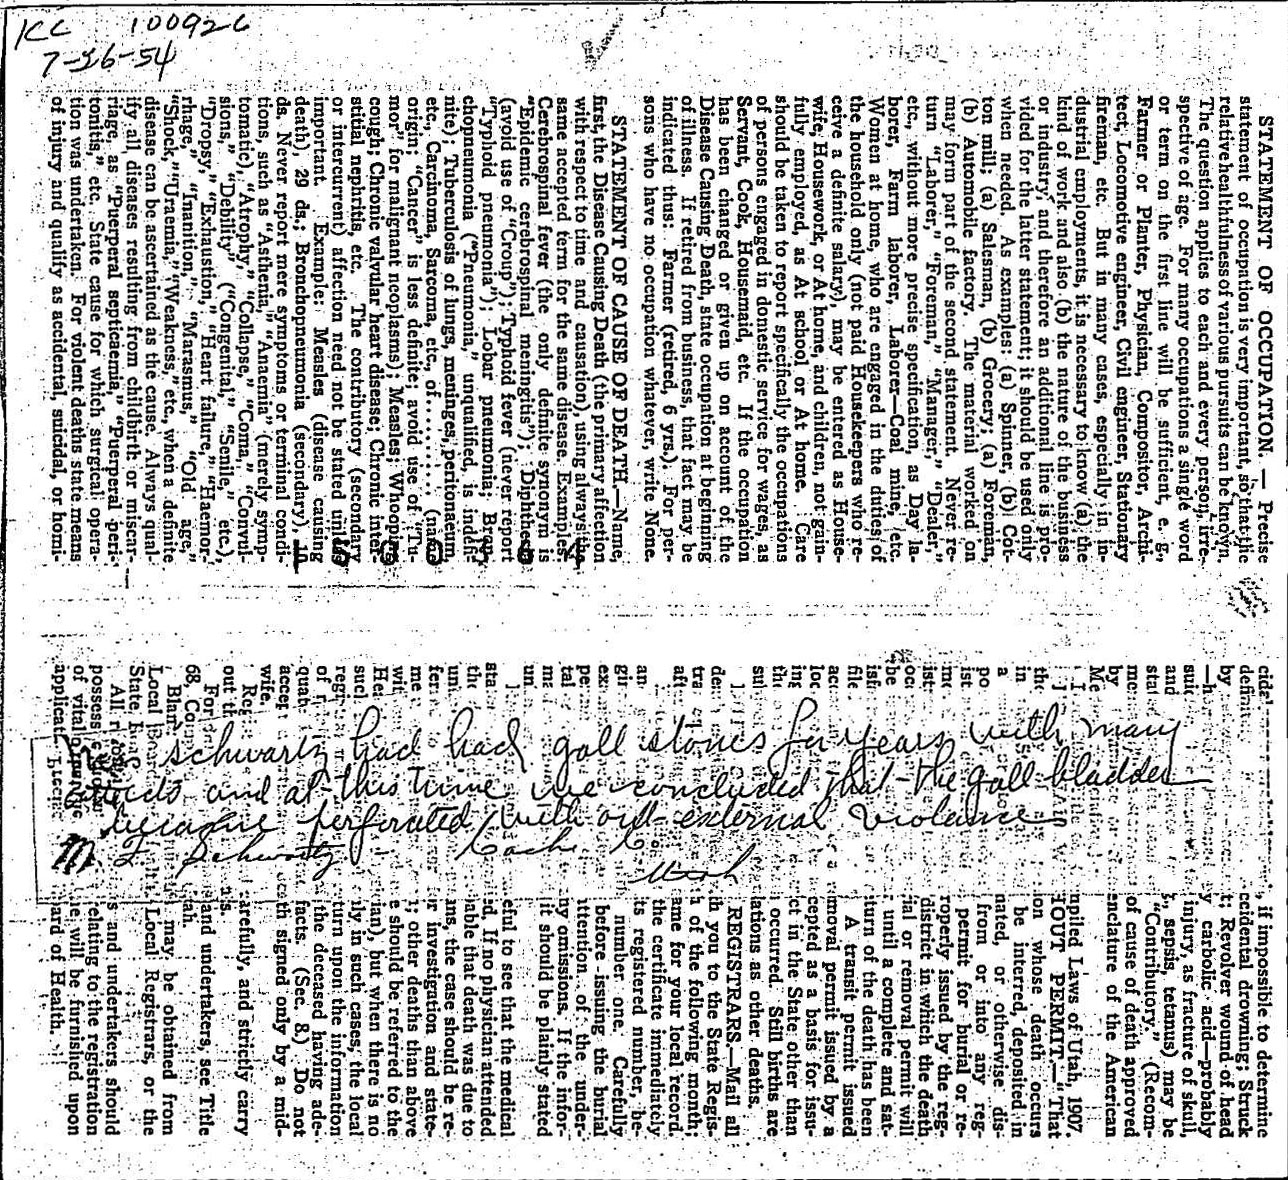 KC 100926
7-26-54
STATEMENT OF OCCUPATION. — Precise
statement of occupation is very important, so that the
relative healthfulness of various pursuits can be known.
The question applies to each and every person, irre-
spective of age. For many occupations a single word
or term on the first line will be sufficient, e. g.,
Farmer or Planter, Physician, Compositor, Archi-
tect, Locomotive engineer, Civil engineer, Stationary
fireman, etc. But in many cases, especially in in-
dustrial employments, it is necessary to know (a) the
kind of work and also (b) the nature of the business
or industry, and therefore an additional line is pro-
vided for the latter statement; it should be used only
when needed. As examples: (a) Spinner, (b) Cot-
ton mill; (a) Salesman, (b) Grocery; (a) Foreman,
(b) Automobile factory. The material worked on
may form part of the second statement. Never re-
turn "Laborer," "Foreman," "Manager," "Dealer,"
etc., without more precise specification, as Day la-
borer, Farm laborer, Laborer—Coal mine, etc.
Women at home, who are engaged in the duties of
the household only (not paid Housekeepers who re-
ceive a definite salary), may be entered as House-
wife, Housework, or At home, and children, not gain-
fully employed, as At school or At home. Care
should be taken to report specifically the occupations
of persons engaged in domestic service for wages, as
Servant, Cook, Housemaid, etc. If the occupation
has been changed or given up on account of the
Disease Causing Death, state occupation at beginning
of illness. If retired from business, that fact may be
indicated thus: Farmer (retired, 6 yrs.). For per-
sons who have no occupation whatever, write None.
STATEMENT OF CAUSE OF DEATH.—Name,
first, the Disease Causing Death (the primary affection
with respect to time and causation), using always the
same accepted term for the same disease. Examples:
Cerebrospinal fever (the only definite synonym is
"Epidemic cerebrospinal meningitis"); Diphtheria
(avoid use of "Croup"); Typhoid fever (never report
"Typhoid pneumonia"); Lobar pneumonia; Bron-
chopneumonia ("Pneumonia," unqualified, is indefi-
nite); Tuberculosis of lungs, meninges, peritonaeum,
etc., Carcinoma, Sarcoma, etc., of.......... (name
origin; "Cancer" is less definite; avoid use of "Tu-
mor" for malignant neoplasms); Measles; Whooping
cough; Chronic valvular heart disease; Chronic inter-
stitial nephritis, etc. The contributory (secondary
or intercurrent) affection need not be stated unless
important. Example: Measles (disease causing
death), 29 ds.; Bronchopneumonia (secondary), 10
ds. Never report mere symptoms or terminal condi-
tions, such as "Asthenia," "Anaemia" (merely symp-
tomatic), "Atrophy," "Collapse," "Coma," "Convul-
sions," "Debility" ("Congenital," "Senile," etc.),
"Dropsy," "Exhaustion," "Heart failure," "Haemor-
rhage," "Inanition," "Marasmus," "Old age,"
"Shock," "Uraemia," "Weakness," etc., when a definite
disease can be ascertained as the cause. Always qual-
ify all diseases resulting from childbirth or miscar-
riage, as "Puerperal septicaemia," "Puerperal peri-
tonitis," etc. State cause for which surgical opera-
tion was undertaken. For violent deaths state means
of injury and qualify as accidental, suicidal, or homi-
cid , if impossible to determine
definit ccidental drowning; Struck
by t; Revolver wound of head
—h y carbolic acid—probably
suic injury, as fracture of skull,
and , sepsis, tetanus) may be
stat "Contributory." (Recom-
me of cause of death approved
by enclature of the American
Me
mpiled Laws of Utah, 1907.
HOUT PERMIT—"That
the on whose death occurs
in be interred, deposited in
a nated, or otherwise dis-
po from or into any reg-
ist permit for burial or re-
mo roperly issued by the reg-
ist district in which the death
oc ial or removal permit will
be until a complete and sat-
isf turn of the death has been
file A transit permit issued
acc moval permit issued by a
loc cepted as a basis for issu-
ing ct in the State other than
th occurred. Still births are
su lations as other deaths.
REGISTRARS.—Mail all
de th you to the State Regis-
tra h of the following month;
aft ame for your local record.
the certificate immediately
an its registered number, be-
gi number one. Carefully
ex before issuing the burial
pe ttention of the under-
tal ny omissions. If the infor-
ma it should be plainly stated
eful to see that the medical
sta d. If no physician attended
th able that death was due to
un ans, the case should be re-
fer r investigation and state-
me ; other deaths than above
wit e should be referred to the
He ian), but when there is no
suc ily in such cases, the local
regi turn upon the information
of the deceased having ade-
qua facts. (Sec. 8.) Do not
accep th signed only by a mid-
wife.
Reg arefully, and strictly carry
out th s.
For and undertakers, see Title
68, Com tah.
Blan may be obtained from
Local Board Local Registrars, or the
State B
All s and undertakers should
possess elating to the registration
of vital e will be furnished upon
applicat ard of Health.
schwartz had had gall stones for years with many
and at this time we concluded that the gall bladder
became perforated with out external violence
M L Schwartz Cache C
Utah